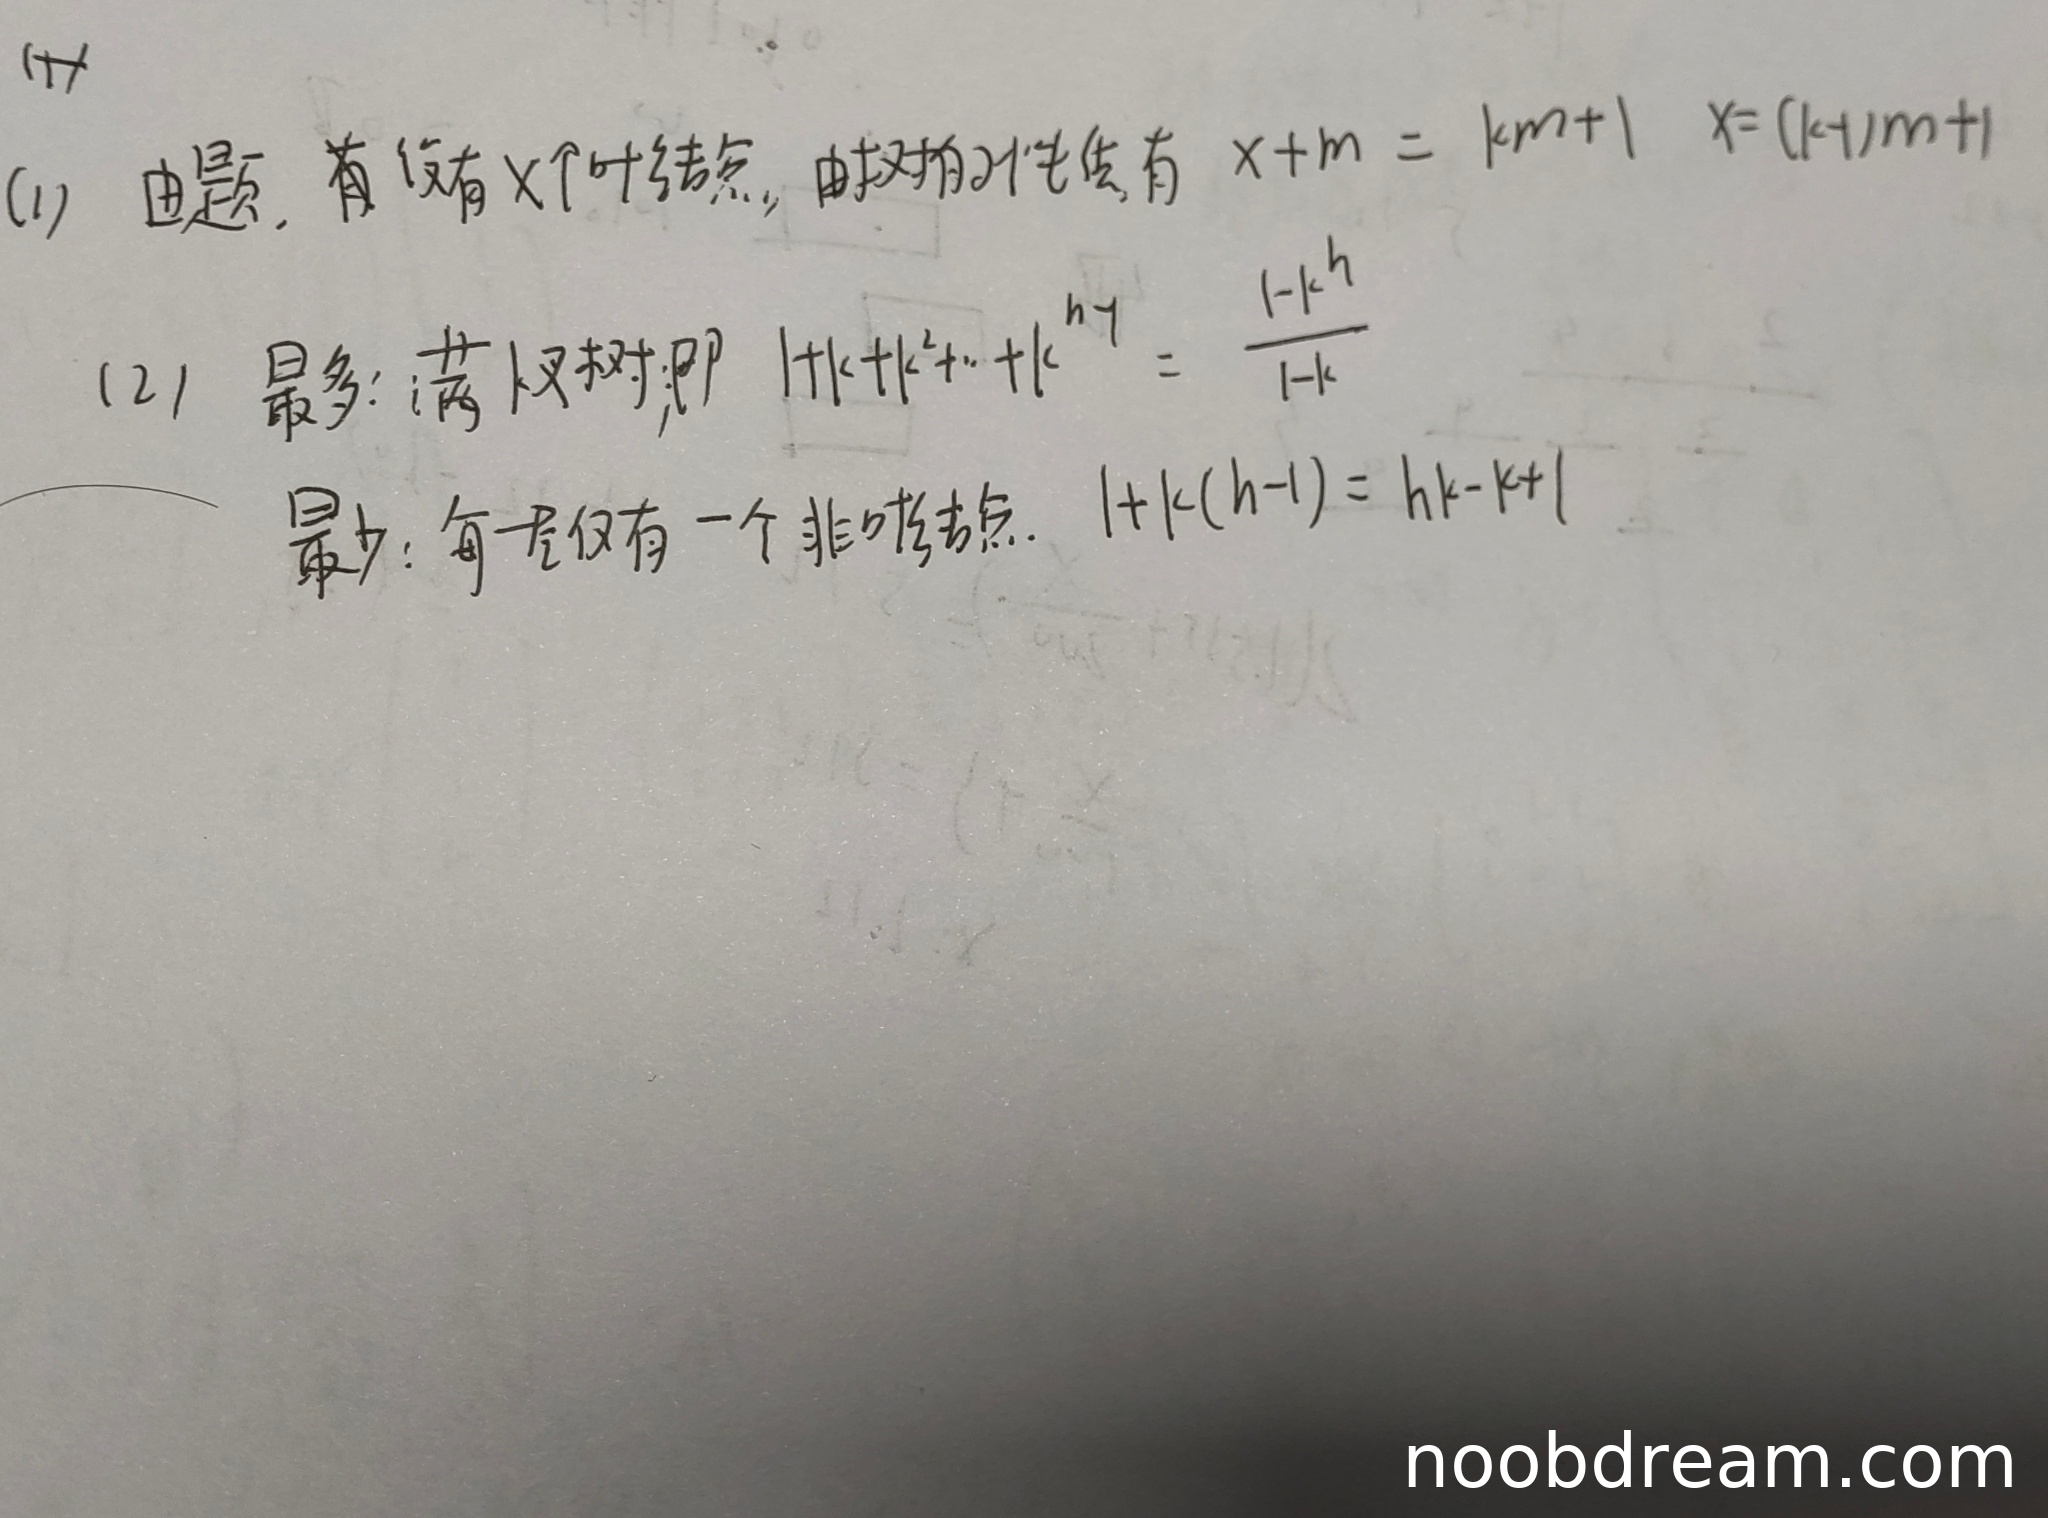 (1) 由题. 设有x个叶结点, 由树的性质有 x+m = km+1 x=(k-1)m+1
(2) 最多: 满k叉树, 即 1+k+k²+…+k^(h-1) = (1-k^h)/(1-k)
最少: 每层仅有一个非叶结点. 1+k(h-1) = hk-k+1
noobdream.com